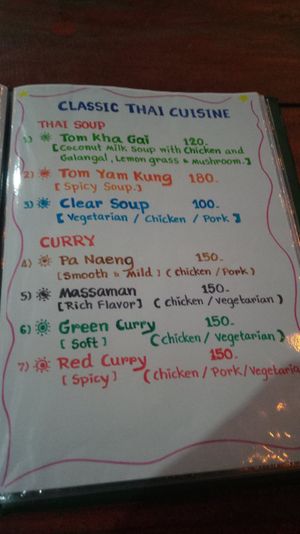 CLASSIC THAI CUISINE
THAI SOUP
1) Tom Kha Gai 120.-
[Coconut Milk Soup with Chicken and
Galangal, Lemon grass & Mushroom.]
2) Tom Yam Kung 180.-
[Spicy Soup.]
3) Clear Soup 100.-
[Vegetarian / Chicken / Pork]
CURRY
4) Pa Naeng 150.-
[Smooth & Mild] (chicken / Pork)
5) Massaman 150.-
[Rich Flavor] (chicken / vegetarian)
6) Green Curry 150.-
[Soft] (chicken / Vegetarian)
7) Red Curry 150.-
[Spicy] (chicken / Pork / Vegetaria